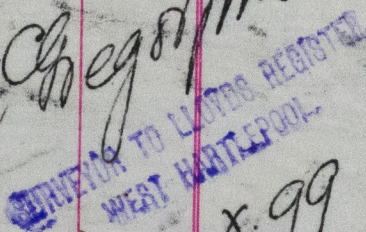 SURVEYOR TO LLOYDS REGISTER
WEST HARTLEPOOL
x. 99